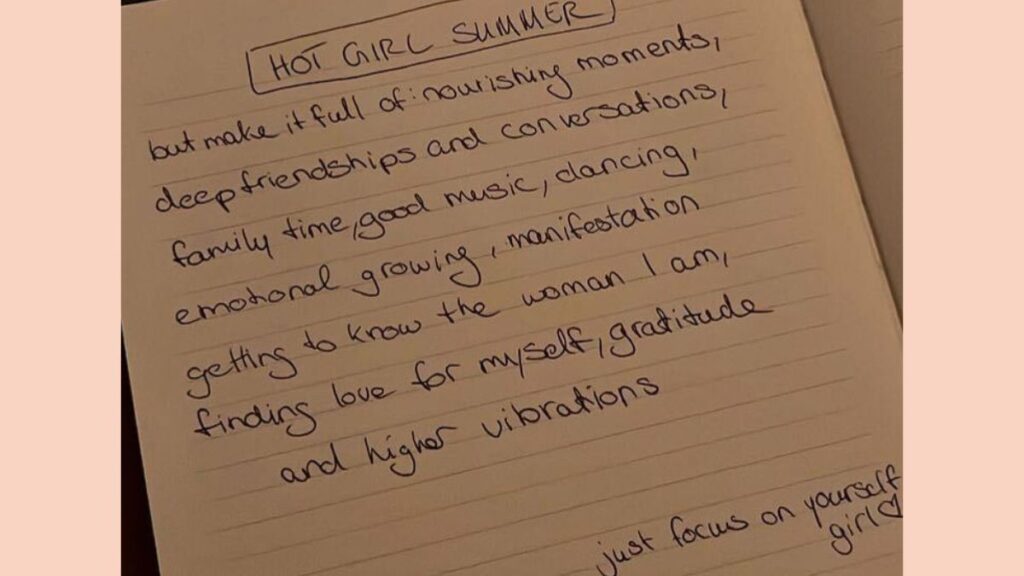 HOT GIRL SUMMER
but make it full of: nourishing moments,
deep friendships and conversations,
family time, good music, dancing,
emotional growing, manifestation
getting to know the woman I am,
finding love for myself, gratitude
and higher vibrations
just focus on yourself
girl♡